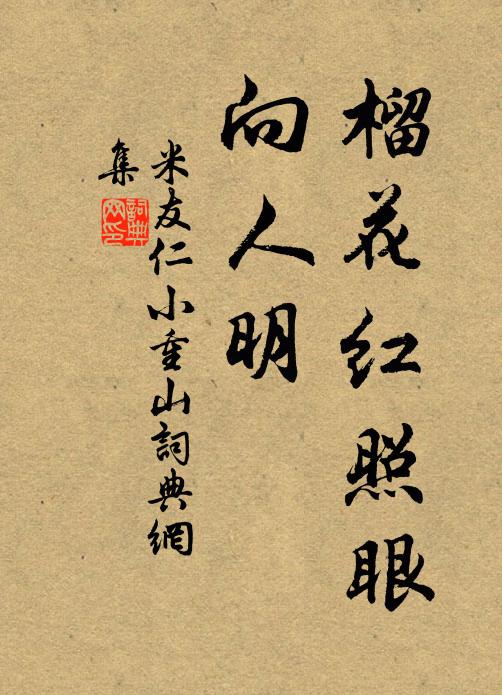 榴花红照眼
向人明
米友仁小重山詞典網
集
詞典网印